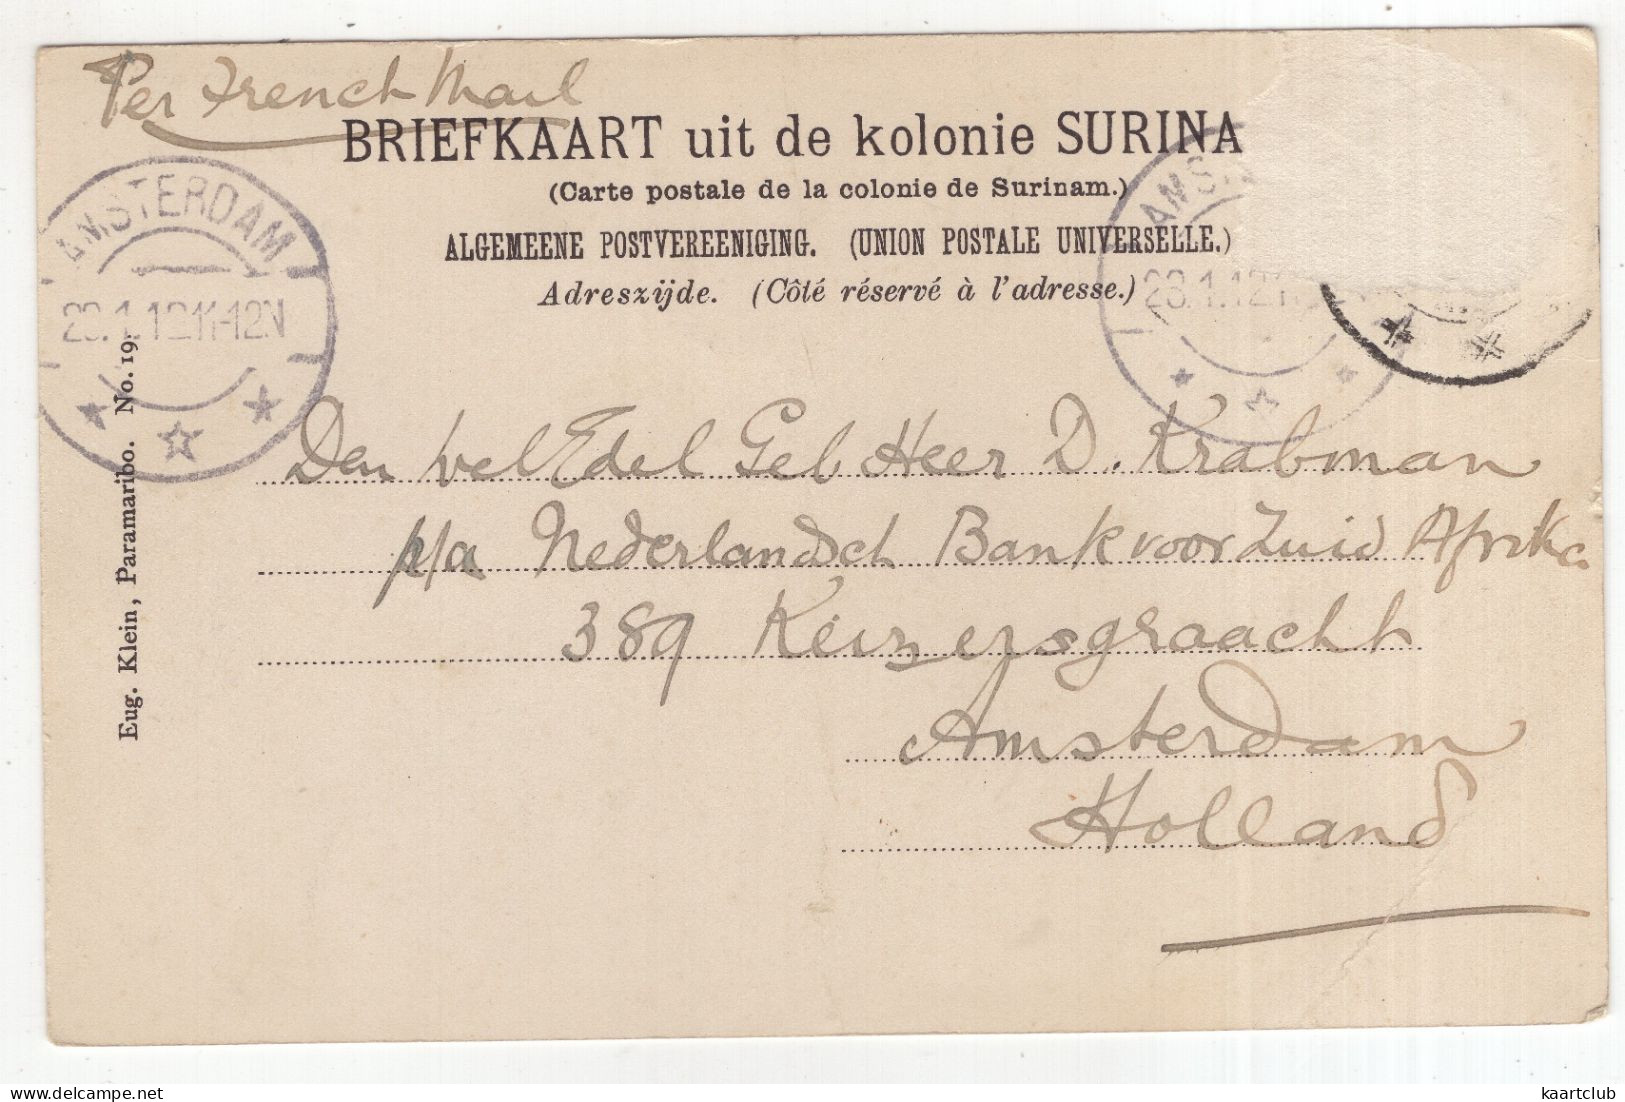 Per French Mail
BRIEFKAART uit de kolonie SURINA
(Carte postale de la colonie de Surinam.)
ALGEMEENE POSTVEREENIGING. (UNION POSTALE UNIVERSELLE.)
Adreszijde. (Côté réservé à l'adresse.)
AMSTERDAM
28.1.12 11-12N
AMS
28.1.12 11
Den WelEdel Geb Heer D. Krabman
p/a Nederlandsch Bank voor Zuid Afrika
389 Keizersgraacht
Amsterdam
Holland
Eug. Klein, Paramaribo. No. 19.
kaartclub